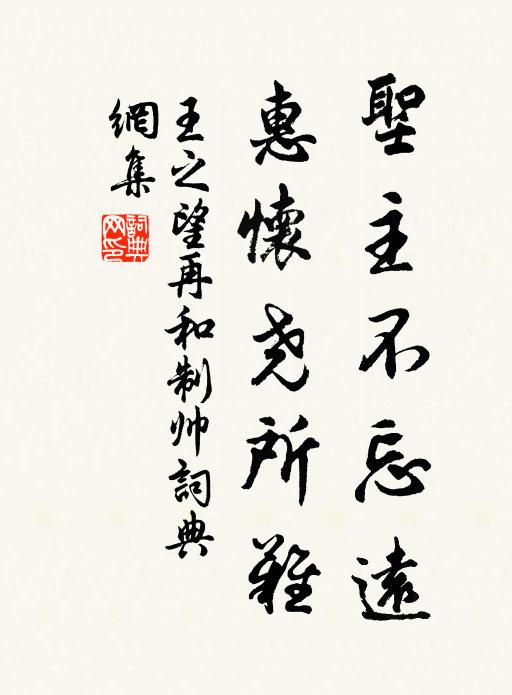 聖主不忘遠
惠懷尧所難
王之望再和制帅詞典
網集
詞典
网印